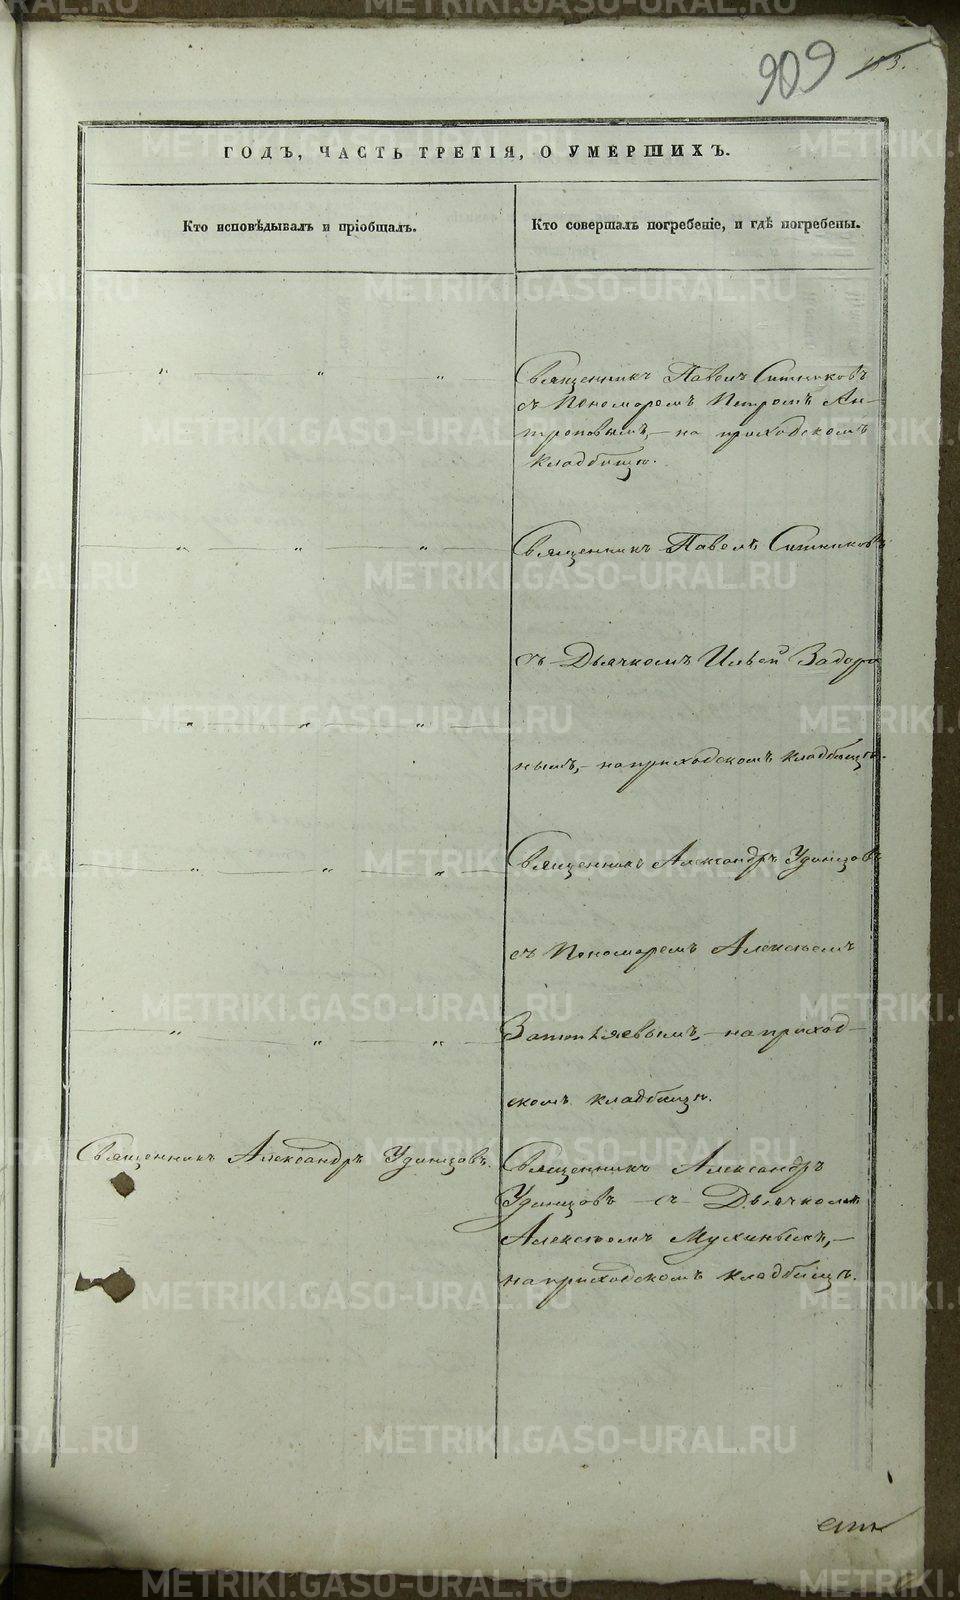 909
183.
ГОДЪ, ЧАСТЬ ТРЕТІЯ, О УМЕРШИХЪ.
Кто исповѣдывалъ и пріобщалъ.
Кто совершалъ погребеніе, и гдѣ погребены.
Священникъ Павелъ Ситниковъ
съ Пономаремъ Петромъ Ан-
троповымъ, - на приходскомъ
кладбищѣ.
Священникъ Павелъ Ситниковъ
съ Дьячкомъ Ильей Задори
нымъ, - на приходскомъ кладбищѣ.
Священникъ Александръ Удинцовъ
съ Пономаремъ Алексѣемъ
- на приход-
скомъ кладбищѣ.
Священникъ Александръ Удинцовъ.
Священникъ Александръ
Удинцовъ съ Дьячкомъ
Алексѣемъ Мухинымъ, -
на приходскомъ кладбищѣ.
METRIKI.GASO-URAL.RU